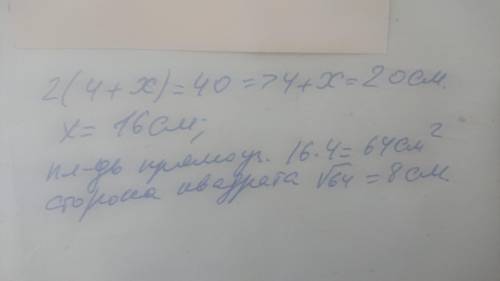 2(4+x)=40=>4+x=20см.
x=16см;
пл-дь прямоуг. 16·4=64см²
сторона квадрата √64=8см